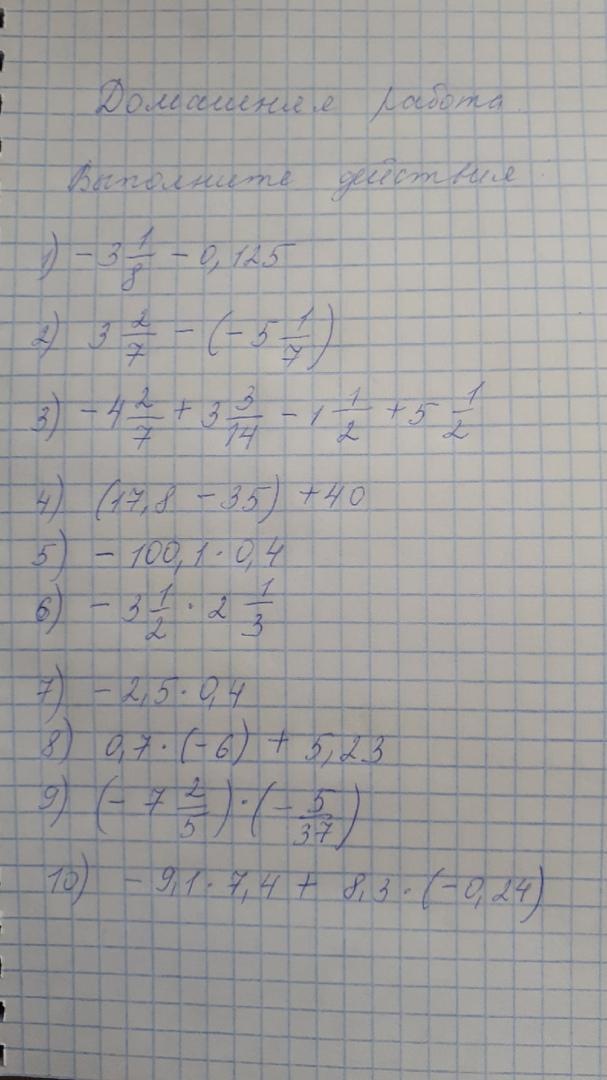 Домашняя работа.
Выполните действия:
1) - 3 1/8 - 0,125
2) 3 2/7 - (- 5 1/7)
3) - 4 2/7 + 3 3/14 - 1 1/2 + 5 1/2
4) (17,8 - 35) + 40
5) - 100,1 · 0,4
6) - 3 1/2 · 2 1/3
7) - 2,5 · 0,4
8) 0,7 · (-6) + 5,23
9) (- 7 2/5) · (- 5/37)
10) - 9,1 · 7,4 + 8,3 · (-0,24)